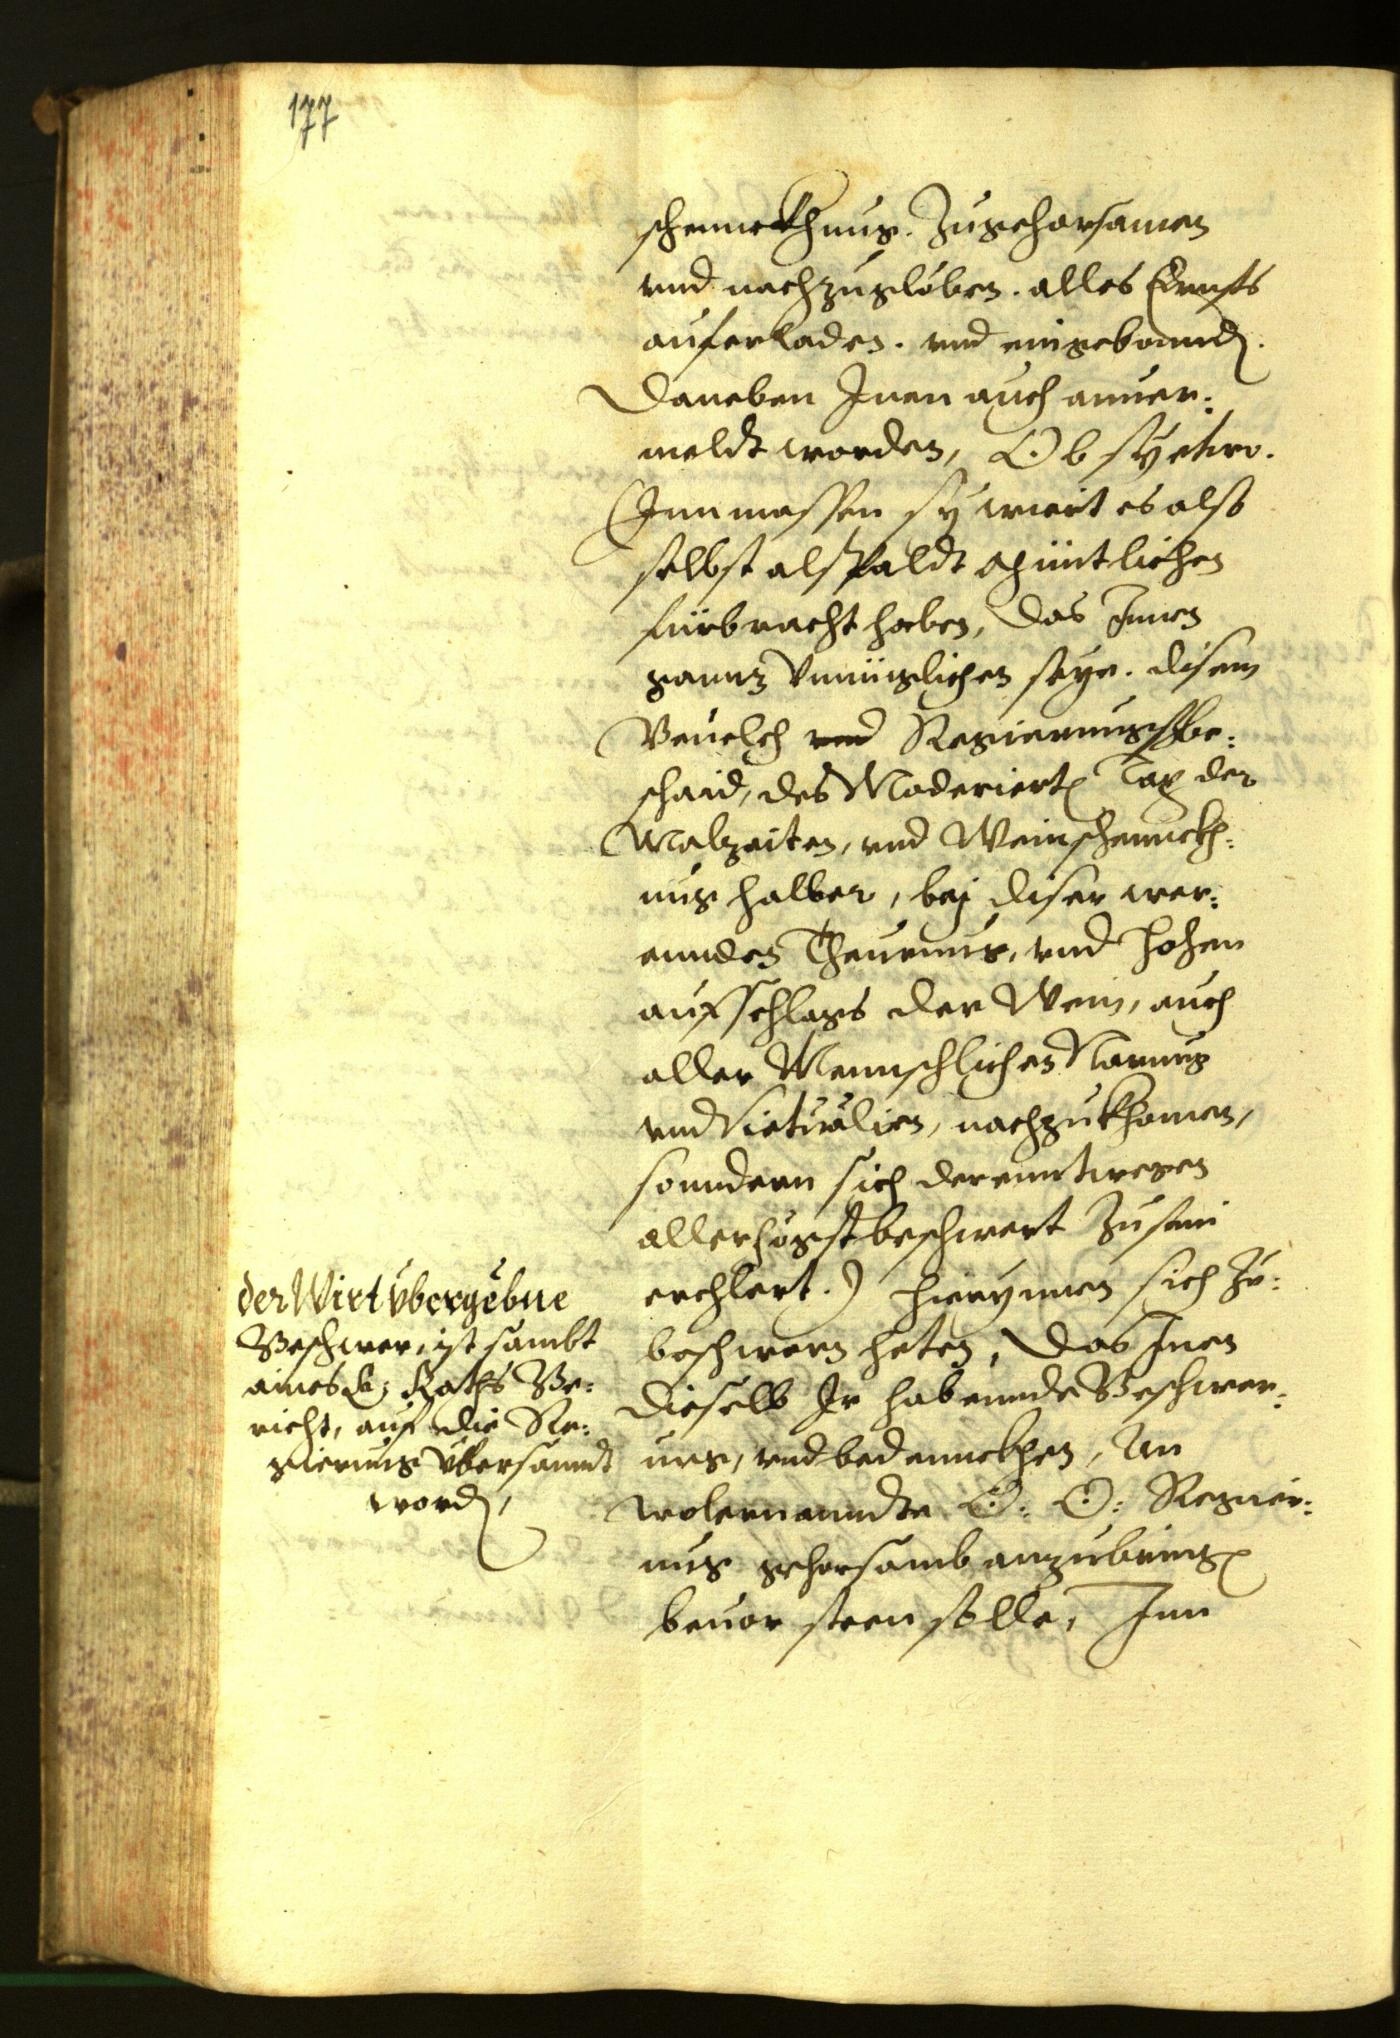 177
schennckhnus. Zugehorsamen
vnd nachzugloben. alles Ernsts
auferladen. vnd eingebunnden.
Daneben Jnen auch anuer:
meldt worden, Ob sy etwo.
(Jnnmassen sy wiert es alss
selbst alspaldt müntlichen
fürbracht haben, das Jnnen
gannz vnmüglichen seye. disem
Beuelch vnd Regierungssbe:
schaid, des Moderierten Tax der
Malzeiten, vnd Weinschennckh:
nus halber, bej diser wer:
ennden Theurung, vnd hohen
aufschlags der Wein, auch
aller Mennschlichen Narung
vnd Victualien, nachzukhomen,
sonndern sich derenntwegen
allerhögst beschwert zusein
erchlert.) hierynnen sich zu:
beschwern heten, Das Jnen
dieselb Jr habennde Beschwer:
ung, vnd bedennckhen, An
wolernanndte O: Ö: Regier:
ung gehorsamb anzubringen
beuor steen solle, Jnn
der Wirt übergebne
Beschwer, ist sambt
aines E: Raths Be:
richt, auf die Re:
gierung übersanndt
worden,